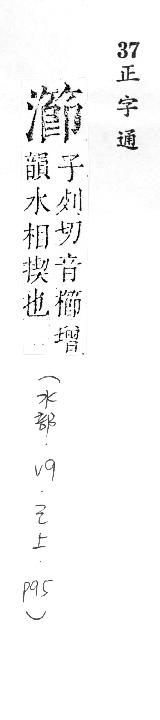 37
正字通
瀄
子列切音櫛增
韻水相揳也
(水部.v9.巳上.p95)